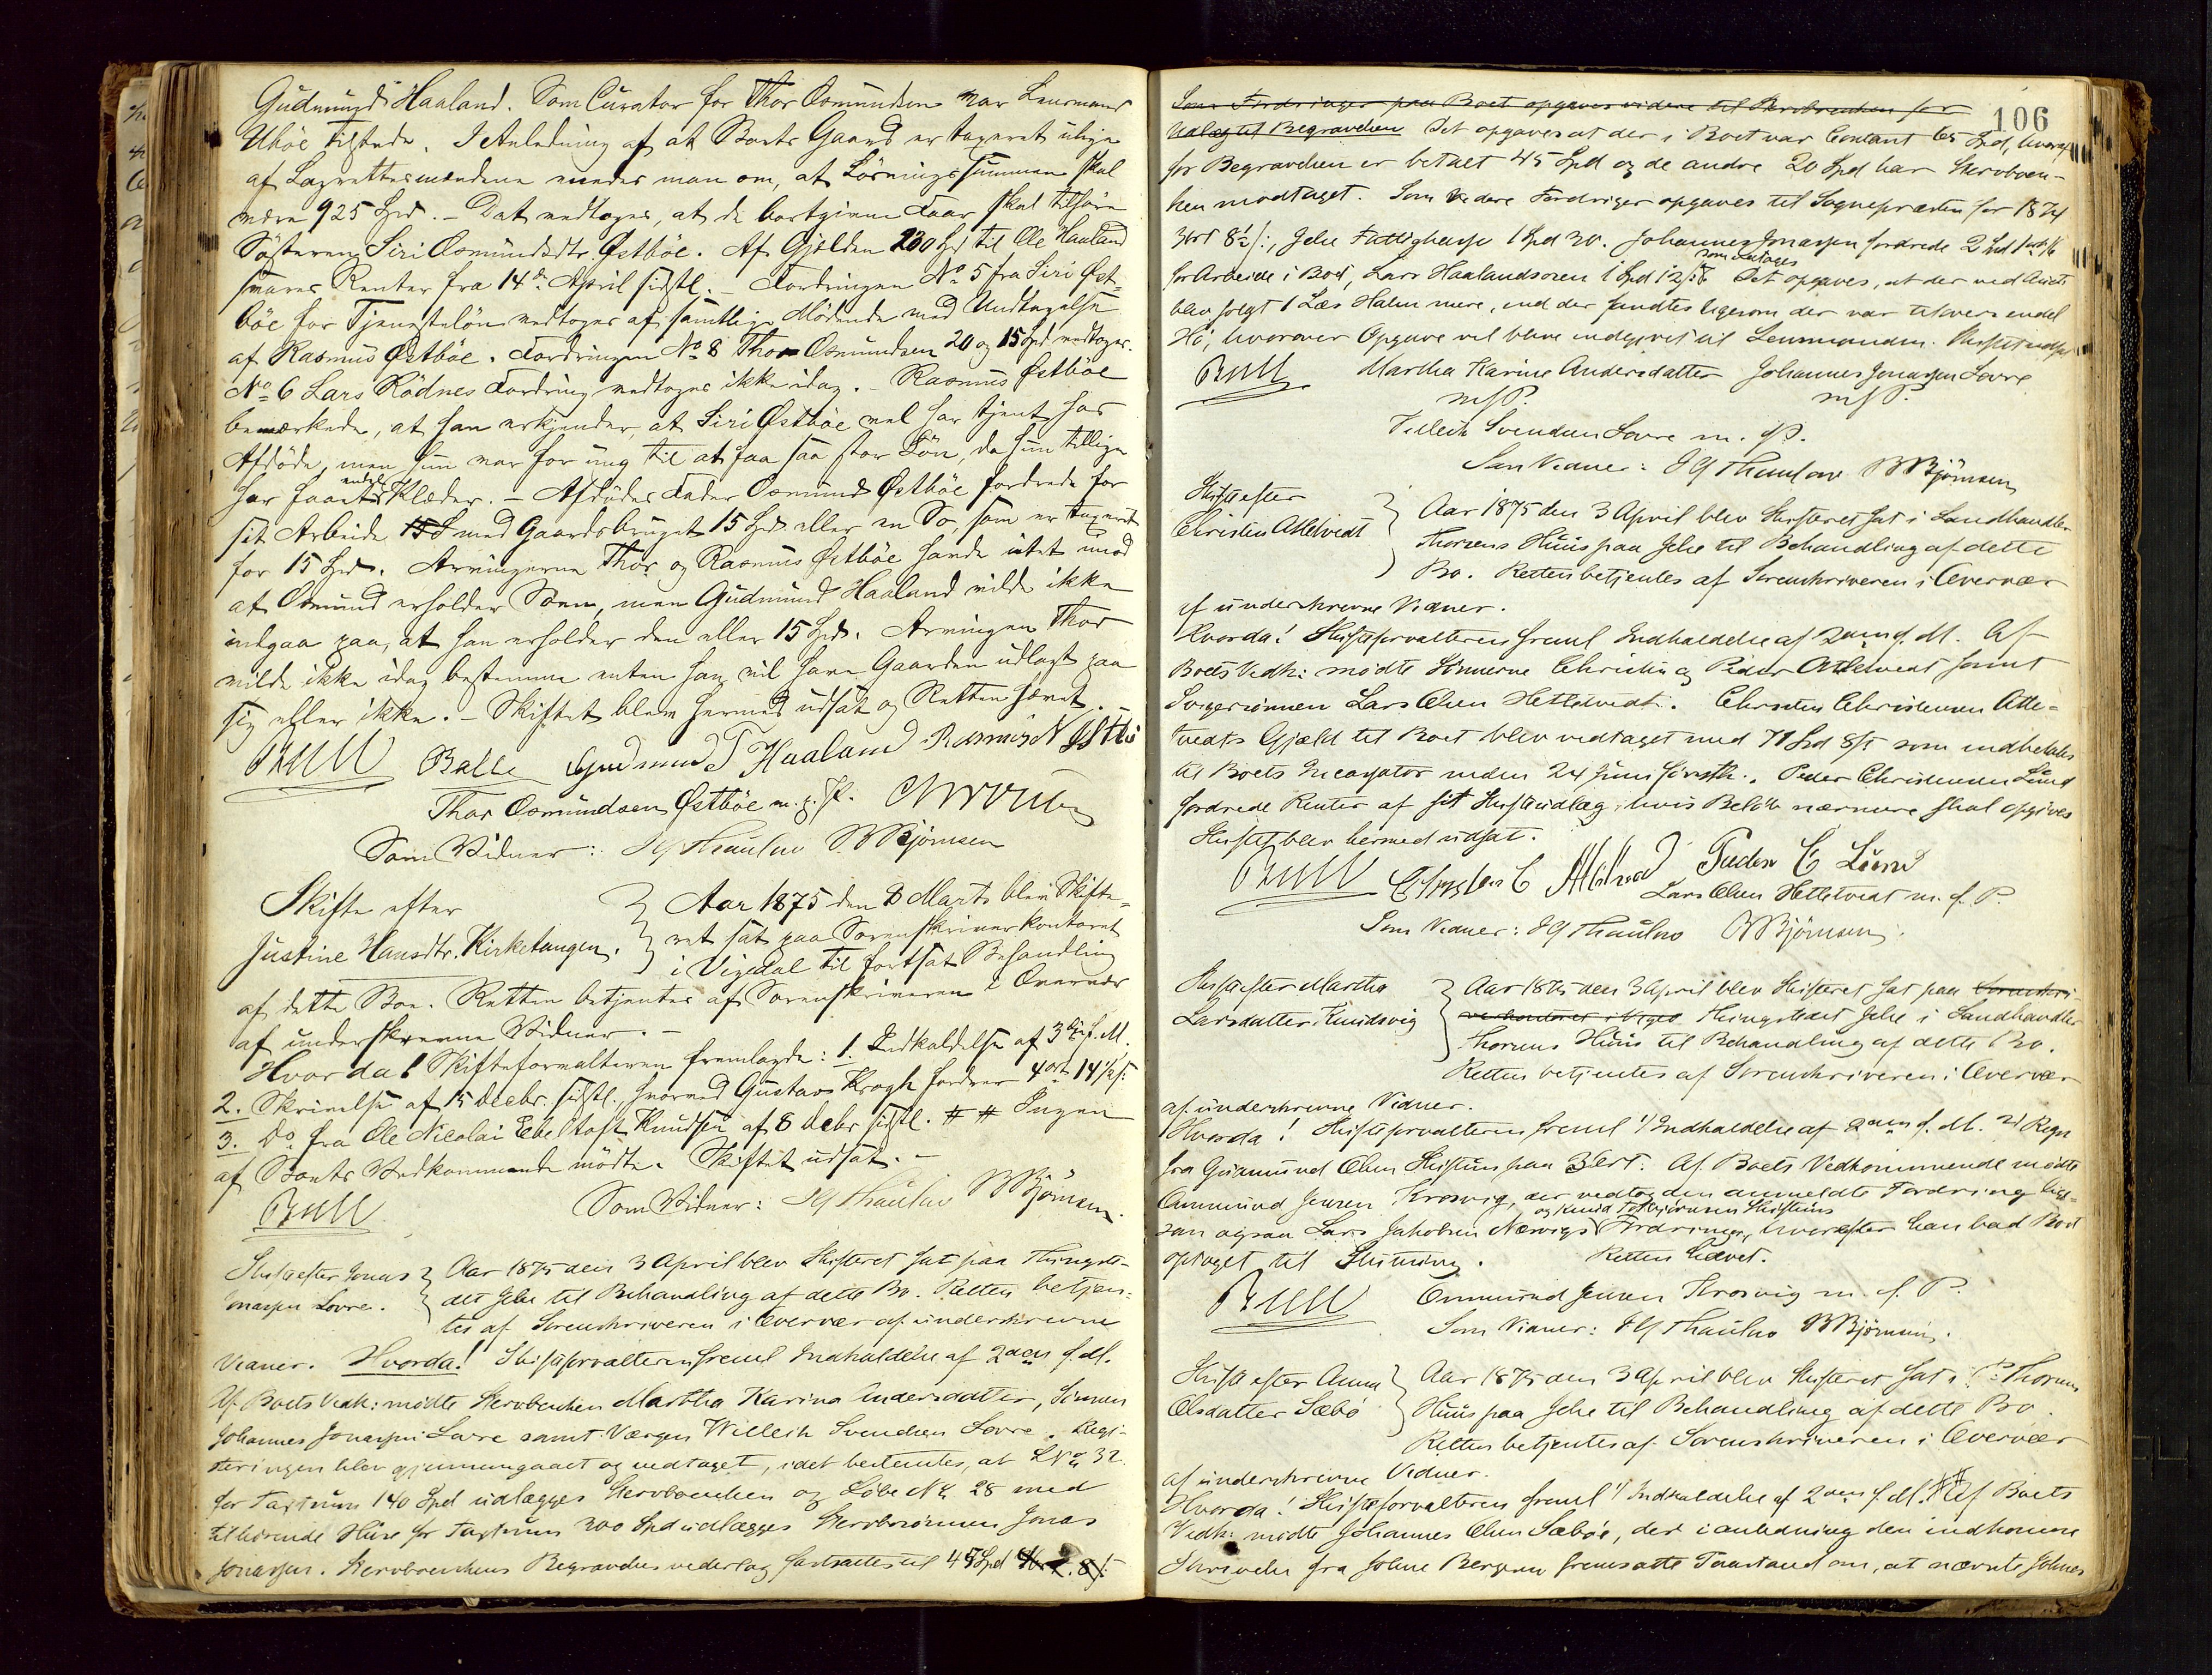 Gudmund Haaland. Som Curator for Thor Osmundsen var Lensmand
Ubøe tilstede. I Anledning af at Boets Gaard er taxeret ulige
af Lagrettesmændene enedes man om, at Løsningssummen skal
være 925 Spd. – Det vedtoges, at de bortgivne Faar skal tilføre
Søsteren Siri Osmundsdtr. Østbøe. Af Gjelden 230 Spd til Ole Haaland
svares Renter fra 14de April sidstl. – Fordringen No 5 fra Siri Øst-
bøe for Tjenesteløn vedtoges af samtlige Mødende med Undtagelse
af Rasmus Østbøe. Fordringen No 8 Thor Osmundsen 20 og 15 Spd vedtoges.
No 6 Lars Rødnes Fordring vedtoges ikke idag. – Rasmus Østbøe
bemærkede, at han erkjender, at Siri Østbøe vel har tjent hos
Afdøde, men hun var for ung til at faa saa stor Løn, da hun tillige
har faaet endel Klæder. – Afdødes Fader Osmund Østbøe fordrede for
sit Arbeide med Gaardsbruget 15 Spd eller en So, som er taxeret
for 15 Spd. Arvingerne Thor og Rasmus Østbøe havde intet imod
at Osmund erholder Soen, men Gudmund Haaland vilde ikke
indgaa paa, at han erholder den eller 15 Spd. Arvingen Thor
vilde ikke idag bestemme enten han vil have Gaarden udlagt paa
sig eller ikke. – Skiftet blev hermed udsat og Retten hævet. –
Bull Balle Gudmund T Haaland Rasmus N Østbø
Thor Osmundsen Østbøe m. p. P.
Som Vidner: Thaulow BBjörnsen
Skifte efter
Justine Hansdtr. Kirketangen.
Aar 1875 den 8 Marts blev Skifte-
ret sat paa Sorenskriverkontoret
i Vigedal til fortsat Behandling
af dette Boe. Retten betjentes af Sorenskriveren i Overvær
af underskrevne Vidner. –
Hvorda! Skifteforvalteren fremlagde: 1. Indkaldelse af 3die f. M.
2. Skrivelse af 15 Decbr. sidstl., hvorved Gustav Krogh fordrer 4 ort 14½ s:
3. Do fra Ole Nicolai Ebeltoft Knudsen af 8 Decbr sidstl. # # Ingen
af Boets Vedkommende mødte. Skiftet udsat. –
Bull
Som Vidner: Thaulow BBjörnsen.
Skifte efter Jonas
Jonassen Lovre.
Aar 1875 den 3 April blev Skifteret sat paa Thingste-
det Jelse til Behandling af dette Bo. Retten betjen-
tes af Sorenskriveren i Overvær af underskrevne
Vidner. Hvorda! Skifteforvalteren freml Indkaldelse af 2den f. M.
Af Boets Vedk: mødte Stervboenken Martha Karina Andersdatter, Sønnen
Johannes Jonassen Lovre samt Værgen Willeik Svendsen Lovre. Regi-
steringen blev gjennemgaaet og vedtaget, idet bestemtes, at LNo 32
for Taxtsum 140 Spd udlægges Stervboenken og Løbe No 28 med
tilhørende Huse for Taxtsum 300 Spd udlægges Stervbosønnen Jonas
Jonassen. Stervboenkens Begravelsesvederlag fastsattes til 45 Spd
106
Som Fordringer paa Boet opgaves videre til Stervboenken for
Udlæg til Begravelsen Det opgaves at der i Boet var Contant 65 Spd, hvoraf
for Begravelsen er betalt 45 Spd og de andre 20 Spd har Stervboen-
ken modtaget. Som videre Fordringer opgaves til Sognepræsten for 1874
3 ort 8½ s:, Jelse Fattigkasse 1 Spd 30. Johannes Jonassen fordrede 2 Spd 1 ort
for Arbeide i Boet, Lars Haalandsosen 1 Spd 12 s: som vedtages Det opgaves, at der ved Auct:
blev solgt 1 Læs Halm mere, end der fandtes ligesom der var tilovers endel
Hø, hvorover Opgave vil blive indgivet til Lensmanden. Skiftet udsat
Bull Martha Karine Andersdatter Johannes Jonassen Lovre
m f P. m f P.
Villeik Svendsen Lovre m. f P.
Som Vidner: Thaulow BBjörnsen
Skifte efter
Christen Attletvedt
Aar 1875 den 3 April blev Skifteret sat i Landhandler
Thorsens Huus paa Jelse til Behandling af dette
Bo. Retten betjentes af Sorenskriveren i Overvær
af underskrevne Vidner.
Hvorda! Skifteforvalteren freml Indkaldelse af 2den f. M. Af
Boets Vedk: mødte Sønnerne Christen og Peder Attletvedt samt
Svigersønnen Lars Olsen Hetletvedt. Christen Christensen Attle-
tvedts Gjæld til Boet blev vedtaget med 71 Spd 8 s som indbetales
til Boets Incassator inden 24 Juni førstk. Peder Christensen Lund
fordrede Renter af sit Skifteudlæg, hvis Beløb nærmere skal opgives
Skiftet blev hermed udsat.
Bull Peder C Lund
Lars Olsen Hetletvedt m. f. P.
Som Vidner: Thaulow BBjörnsen.
Skifte efter Martha
Larsdatter Knudsvig
Aar 1875 den 3 April blev Skifteret sat paa Sorenskri-
verkontoret i Viged Thingstedet Jelse i Landhandler
Thorsens Huus til Behandling af dette Bo.
Retten betjentes af Sorenskriveren i Overvær
af underskrevne Vidner.
Hvorda! Skifteforvalteren freml 1/ Indkaldelse af 2den f. M. 2/ Regn
fra Gudmund Olsen paa 3 ort. Af Boets Vedkommende mødte
Ommund Jensen Krosvig, der vedtog den anmeldte Fordring lige-
som ogsaa Lars Jakobsen Nærvigs og Knud Torbjørnsen Fordringer, hvorefter han bad Boet
optaget til Slutning. Retten hævet.
Bull Ommund Jensen Krosvig m. f. P.
Som Vidner: Thaulow BBjörnsen.
Skifte efter Anna
Olsdatter Sæbø
Aar 1875 den 3 April blev Skifteret sat i Thorsens
Huus paa Jelse til Behandling af dette Bo.
Retten betjentes af Sorenskriveren i Overvær
af underskrevne Vidner.
Hvorda! Skifteforvalteren freml 1/ Indkaldelse af 2den f. M. ## Af Boets
Vedk: mødte Johannes Olsen Sæbøe, der i anledning den indkomne
Skrivelse fra Johne Bergesen fremsatte Paastand om, at nævnte Johnes